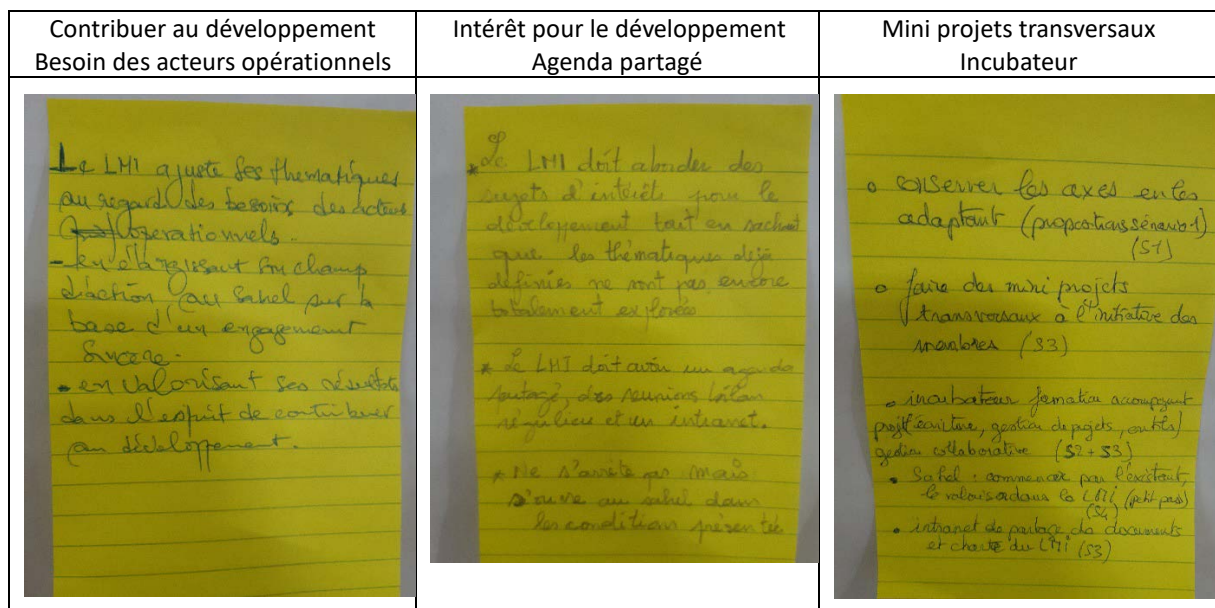 Contribuer au développement
Besoin des acteurs opérationnels
Intérêt pour le développement
Agenda partagé
Mini projets transversaux
Incubateur
Le LMI ajuste ses thématiques
au regard des besoins des acteurs
opérationnels.
- en élargissant son champ
d'action au Sahel sur la
base d'un engagement
sincère.
- en valorisant ses résultats
dans l'esprit de contribuer
au développement.
* Le LMI doit aborder des
sujets d'intérêt pour le
développement tout en sachant
que les thématiques déjà
définies ne sont pas encore
totalement explorées
* Le LMI doit avoir un agenda
partagé, des réunions bilan
régulières et un intranet.
* Ne s'arrête pas mais
s'ouvre au sahel dans
les conditions présenté
o conserver les axes en les
adaptant (propositions scénario 1)
(S1)
o faire des mini projets
transversaux à l'initiative des
membres (S3)
o incubateur formation accompagnant
projet (écriture, gestion de projets, outils)
gestion collaborative (S2 + S3)
• Sahel : commencer par l'existant,
le valoriser dans le LMI (petit pas)
(S4)
• intranet de partage de documents
et charte du LMI (S3)